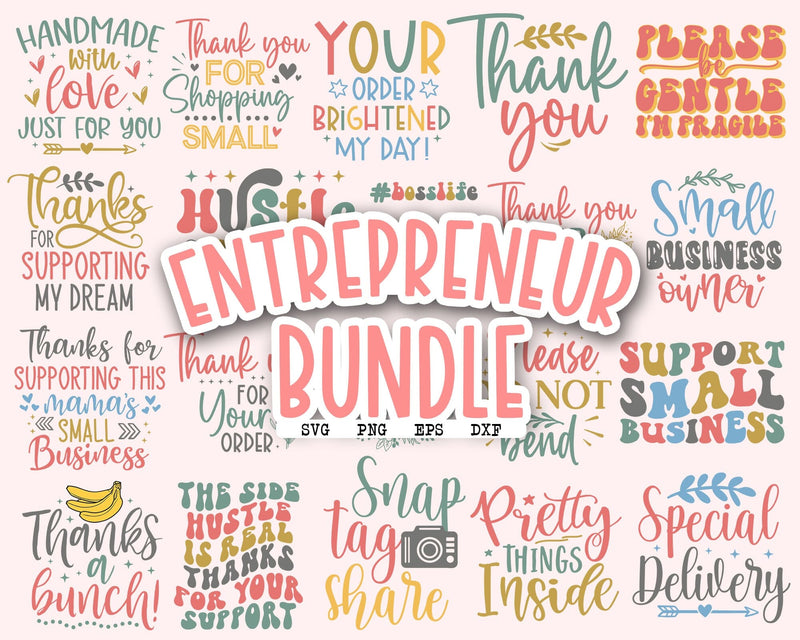 HANDMADE
with
love
JUST FOR YOU
Thank you
FOR
Shopping
SMALL
YOUR
ORDER
BRIGHTENED
MY DAY!
Thank
you
PLEASE
be
GENTLE
I'M FRAGILE
Thanks
FOR
SUPPORTING
MY DREAM
HUSTLE
#bosslife
Thank you
Small
BUSINESS
owner
ENTREPRENEUR
BUNDLE
SVG PNG EPS DXF
Thanks for
SUPPORTING THIS
mama's
SMALL
Business
Thank
FOR
Your
ORDER
Please
NOT
bend
SUPPORT
SMALL
BUSINESS
Thanks
a
bunch!
THE SIDE
HUSTLE
IS REAL
THANKS
FOR YOUR
SUPPORT
Snap
tag
share
Pretty
THINGS
Inside
Special
Delivery